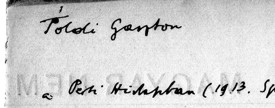 Földi Gaston
a Pesti Hirlapban (1913. Sp